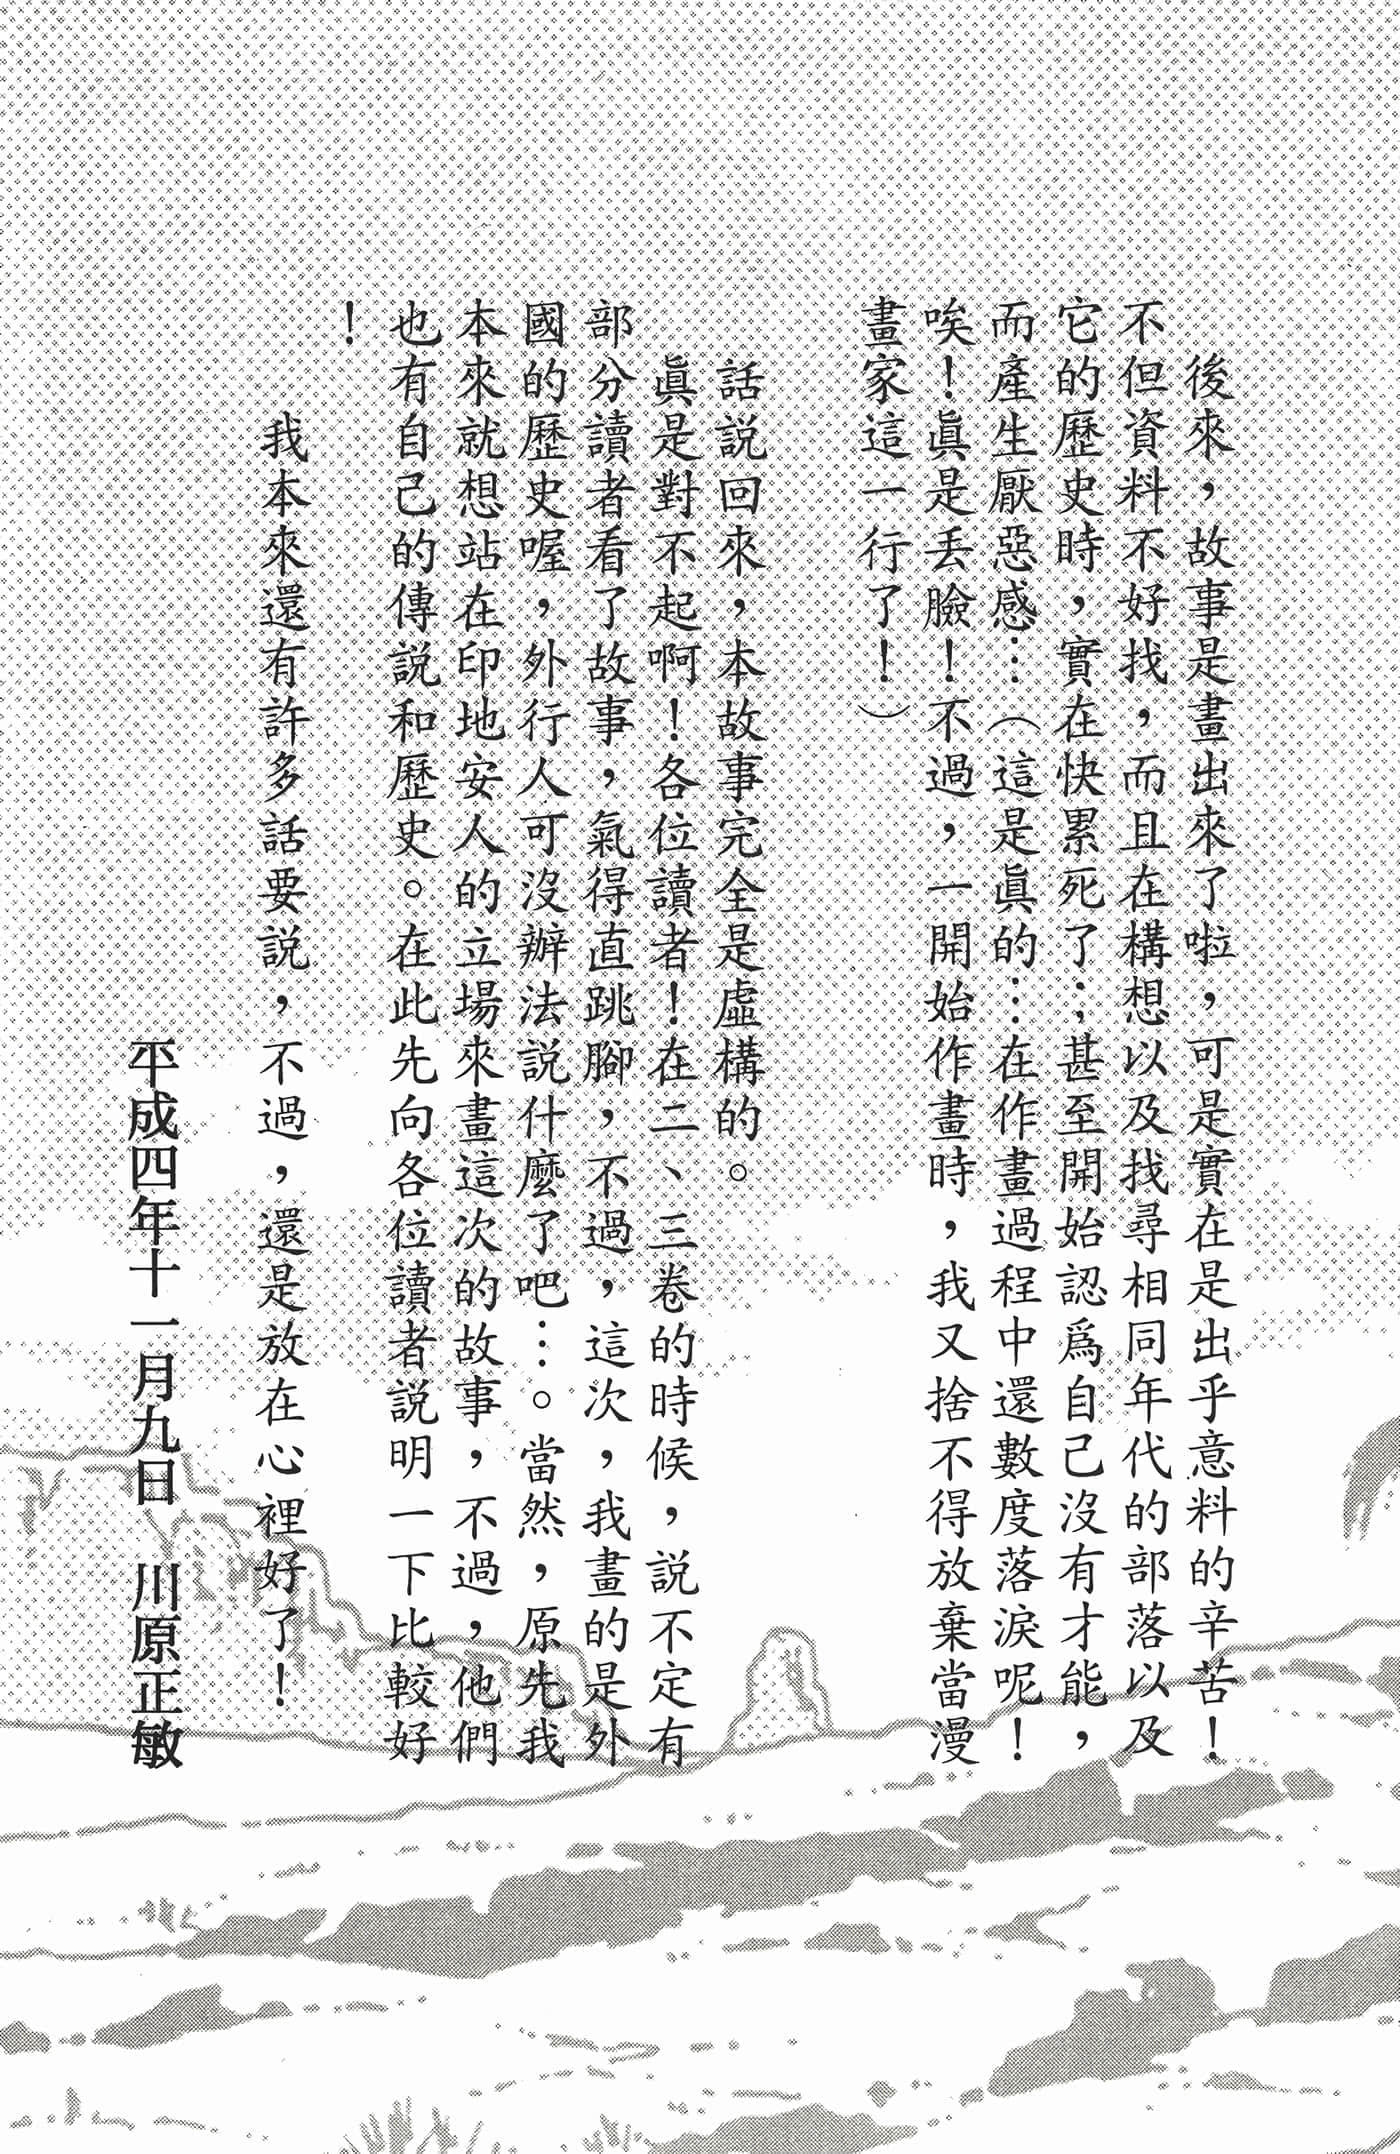 後來，故事是畫出來了啦，可是實在是出乎意料的辛苦！
不但資料不好找，而且在構想以及找尋相同年代的部落以及
它的歷史時，實在快累死了；甚至開始認爲自己沒有才能，
而產生厭惡感⋯（這是眞的⋯在作畫過程中還數度落淚呢！
唉！眞是丟臉！不過，一開始作畫時，我又捨不得放棄當漫
畫家這一行了！）
話説回來，本故事完全是虛構的。
眞是對不起啊！各位讀者！在二、三卷的時候，説不定有
部分讀者看了故事，氣得直跳腳，不過，這次，我畫的是外
國的歷史喔，外行人可沒辦法説什麼了吧⋯。當然，原先我
本來就想站在印地安人的立場來畫這次的故事，不過，他們
也有自己的傳説和歷史。在此先向各位讀者説明一下比較好
！
我本來還有許多話要説，不過，還是放在心裡好了！
平成四年十一月九日　川原正敏